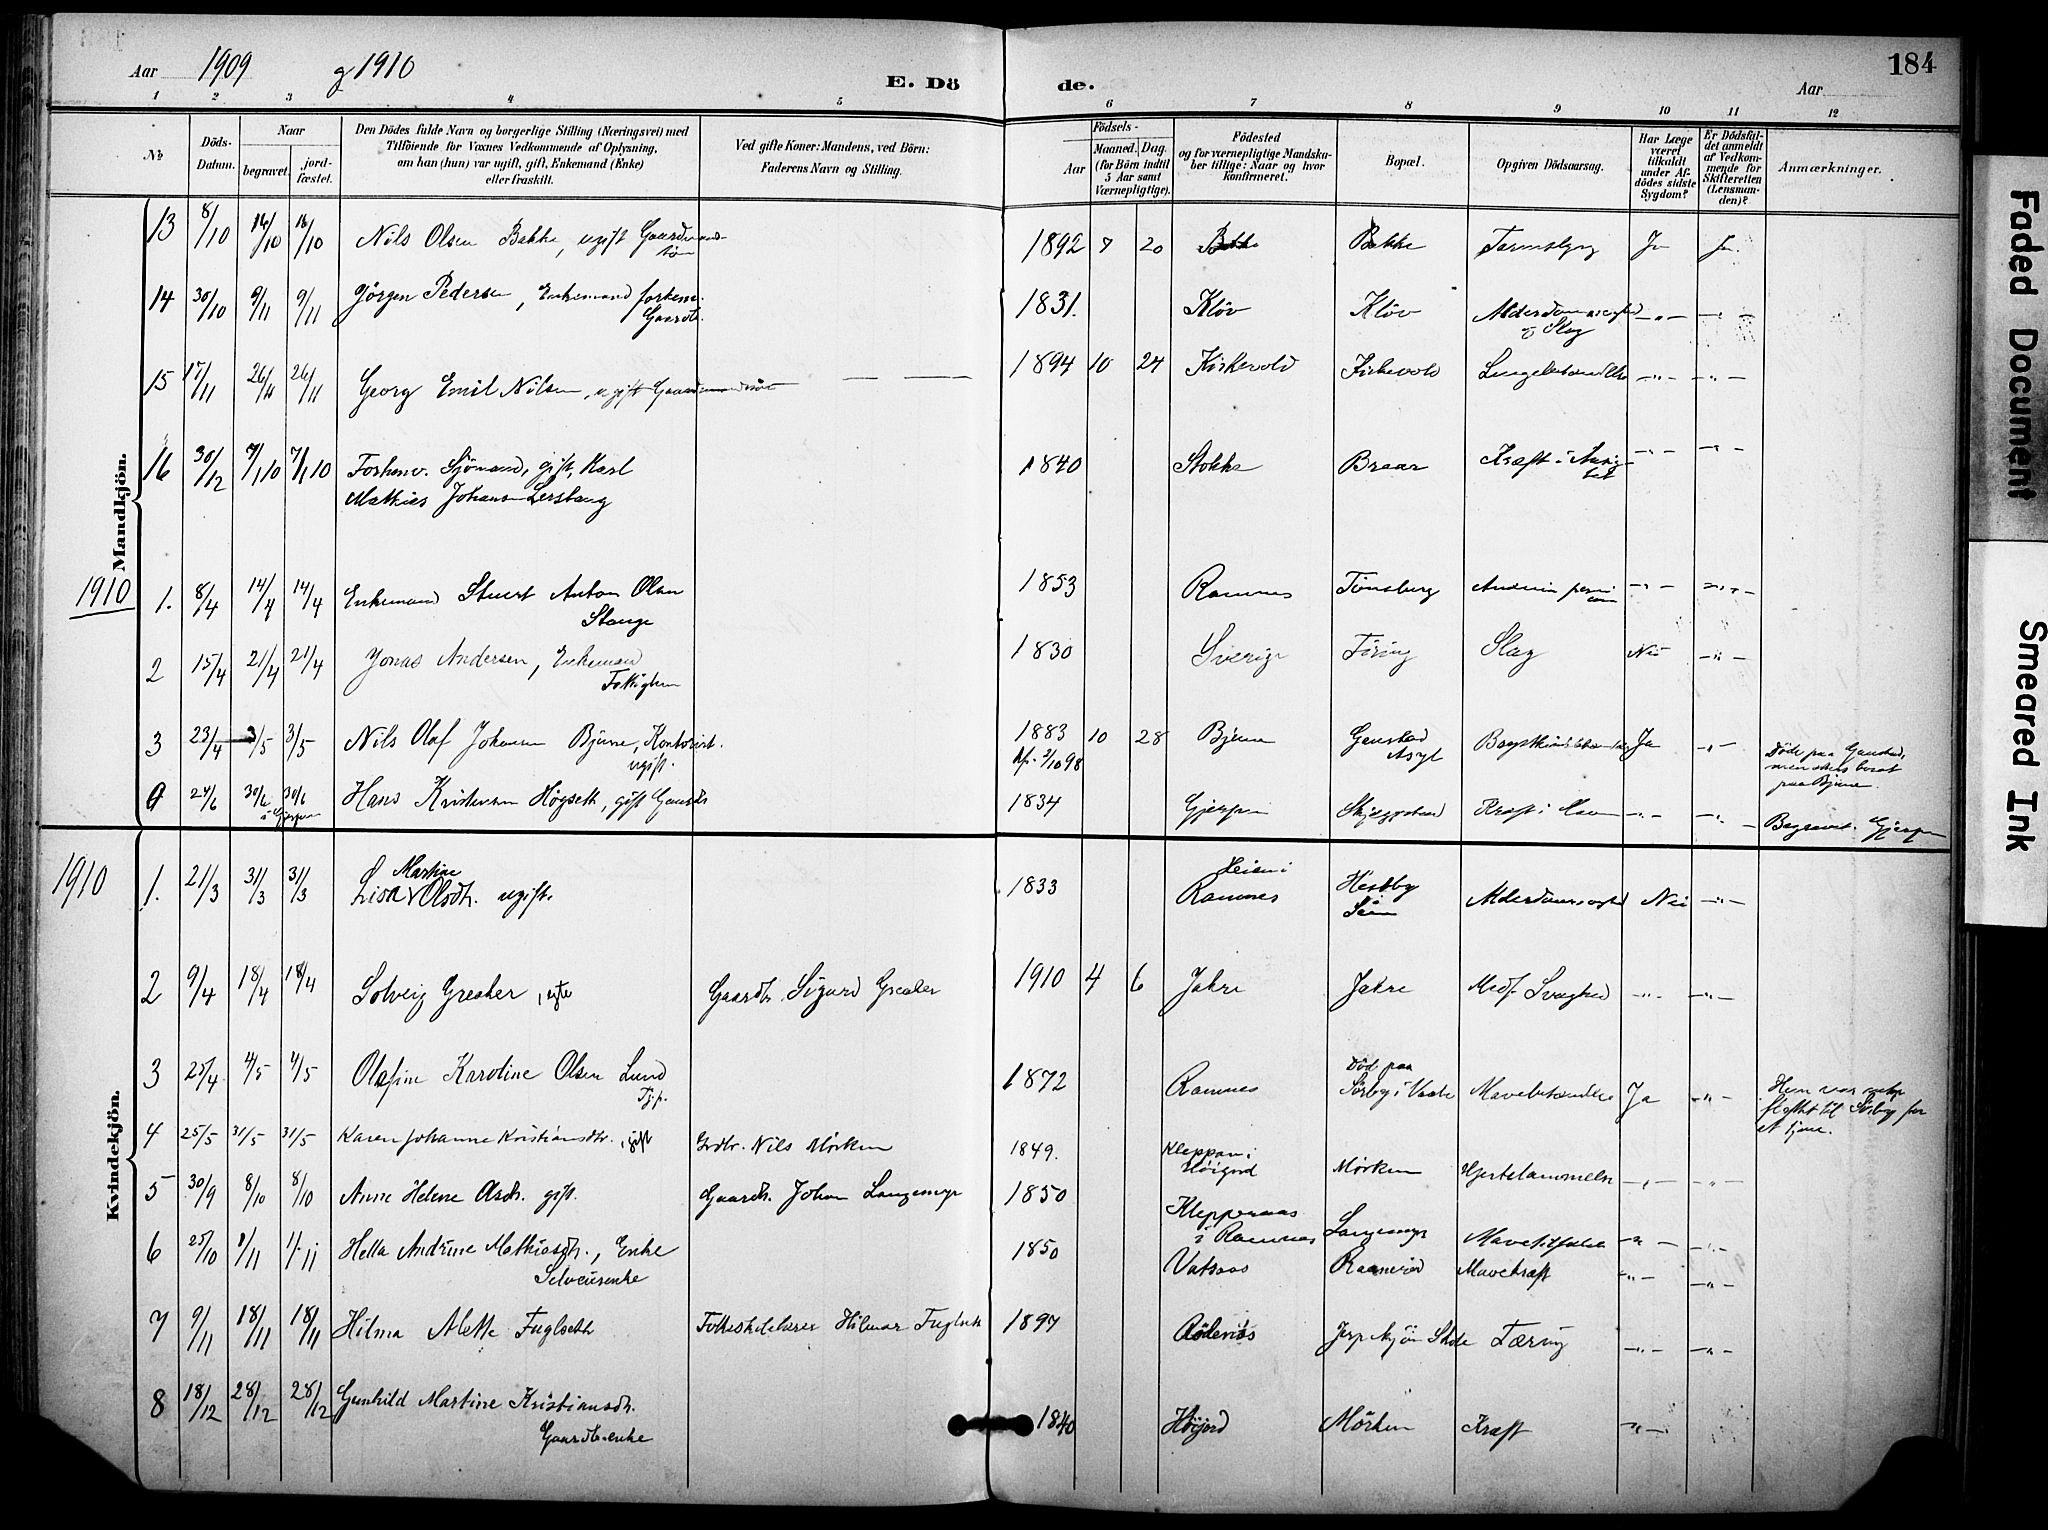 Aar 1909 og 1910
E. Döde.
Aar
184
1 2 3 4 5 6 7 8 9 10 11 12
№
Döds-Datum.
Naar
begravet.
jord-fæstet.
Den Dödes fulde Navn og borgerlige Stilling (Næringsvei) med
Tilföiende for Voxnes Vedkommende af Oplysning,
om han (hun) var ugift, gift, Enkemand (Enke)
eller fraskilt.
Ved gifte Koner: Mandens, ved Börn:
Faderens Navn og Stilling.
Födsels-
Aar
Maaned. Dag.
(for Börn indtil
5 Aar samt
Værnepligtige).
Födested
og for værnepligtige Mandskaber tillige: Naar og hvor konfirmeret.
Bopæl.
Opgiven Dödsaarsag.
Har Læge været tilkaldt under Afdödes sidste Sygdom?
Er Dödsfaldet anmeldt af Vedkommende for Skifteretten (Lensmanden)?
Anmærkninger.
Mandkjön.
13 8/10 16/10 16/10 Nils Olsen Bakke, ugift Gaardmandssön 1892 7 20 Bakke Bakke Ja Ja
14 30/10 9/11 9/11 Jörgen Pedersen, Enkemand forhenv. Gaardbr. 1831. Klöv Klöv Alderdomssvaghed og Slag -"- -"-
15 17/11 26/11 26/11 Georg Emil Nilsen, ugift Gaardmandssön 1894 10 24 Kirkevold Kirkevold -"- -"-
16 30/12 7/1 10 7/1 10 Forhenv. Sjömand, gift, Karl
Mathias Johansen 1840 Stokke Braar Kræft i Ansigtet -"- -"-
1910
1. 8/4 14/4 14/4 Enkemand Anton Olsen
Stange 1853 Ramnes Tönsberg -"- -"-
2 15/4 21/4 21/4 Jonas Andersen, Enkemand
1830 Sverige Slag Nei -"-
3 23/4 3/5 3/5 Nils Olaf Johansen Bjune, Kontorist.
ugift. 1883 10 28 Bjune Gaustad Asyl Ja -"- Döde paa Gaustad,
paa Bjune.
24/6 30/6 30/6 Hans Kristensen Högseth, gift Gaardbr. 1834 Gjerpen Kræft i Maven -"- -"- Begravet i Gjerpen
Kvindekjön.
1910
1. 21/3 31/3 31/3 Lisa Martine Olsdtr. ugift. 1833 Ramnes Hestby
Sem Alderdomssvaghed Nei -"-
2 9/4 18/4 18/4 Solveig Greaker, ægte Gaardbr. Sigurd Greaker 1910 4 6 Jakre Jakre Medf. Svaghed -"- -"-
3 25/4 4/5 4/5 Olafine Karoline Olsen Lund
Tjp. 1872 Ramnes Död paa
Sörby i Vaale Mavebetændelse Ja -"- Hun var
flyttet til Sörby for
at tjene.
4 25/5 31/5 31/5 Karen Johanne Kristiansdtr. gift Grdbr. Nils Mörken 1849. Kleppan i
Höijord Mörken Hjertelammelse -"- -"-
5 30/9 8/10 8/10 Anne Helene gift. Gaardbr. Johan Langemyr 1850 Kleppenaas
i Ramnes Langemyr -"- -"-
6 25/10 1/11 1/11 Hella Andrine Mathiasdtr., Enke
Selveierenke 1850 Vataas Mavekræft -"- -"-
7 9/11 18/11 18/11 Hilma Alette Fuglseth Folkeskolelærer Hilmar Fuglseth 1897 Rödenæs Tæring -"- -"-
8 18/12 28/12 28/12 Gunhild Martine Kristiansdtr.
Gaardbr.enke 1840 Höijord Mörken Kræft -"-
Faded Document
Smeared Ink